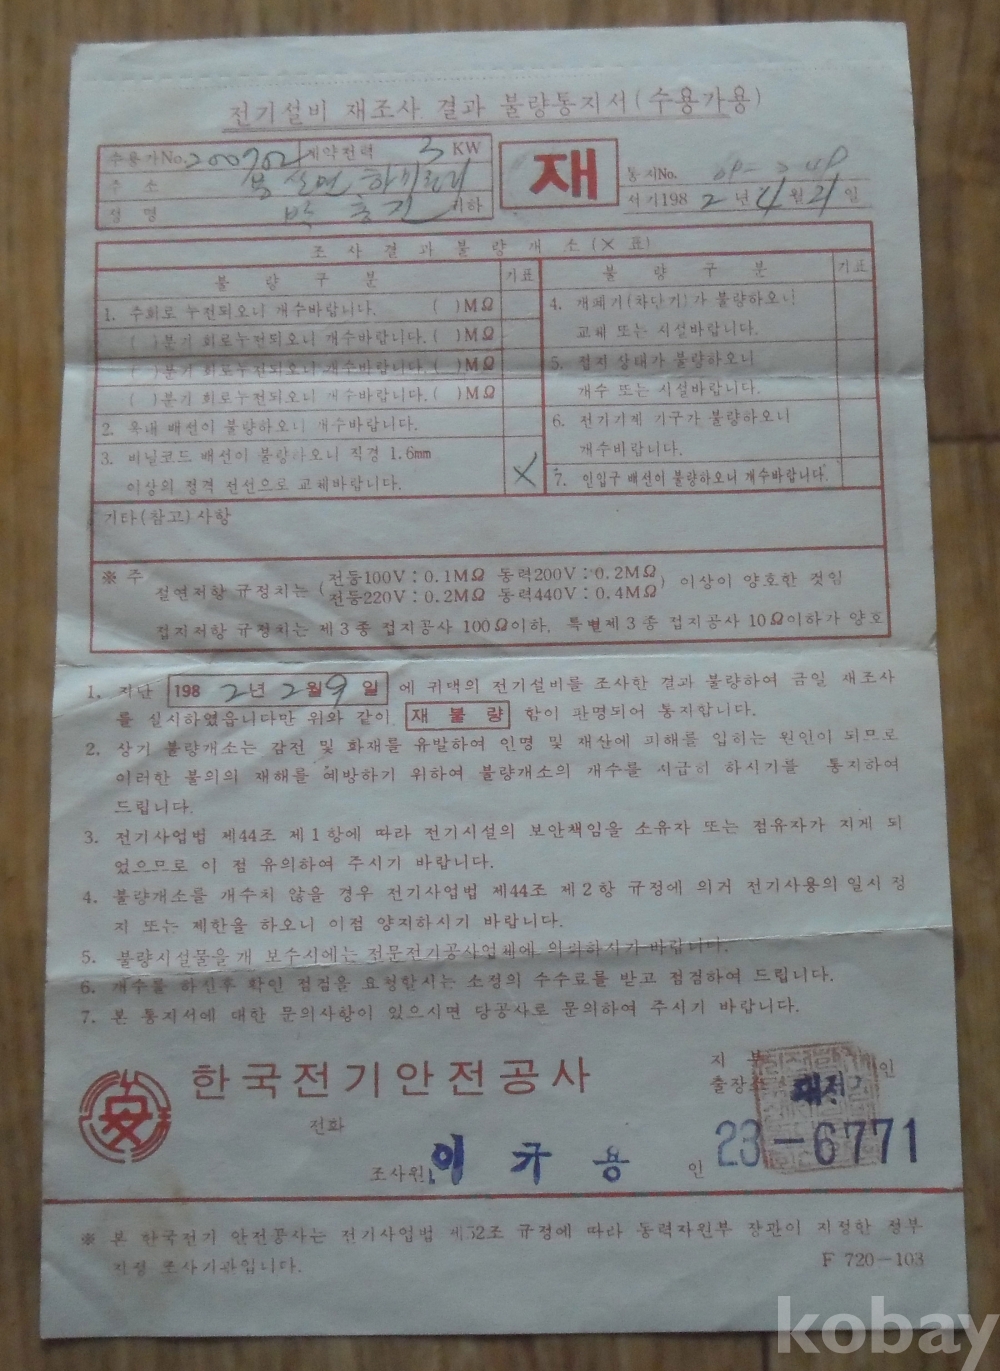 전기설비 재조사 결과 불량통지서(수용가용)
수용가No. 200702 계약전력 3 KW
주 소
성 명 귀하
재
통지No.
서기198 2 년 4 월 21 일
조 사 결 과 불 량 개 소 (× 표)
불 량 구 분 기표
1. 주회로 누전되오니 개수바랍니다. ( )MΩ
( )분기 회로누전되오니 개수바랍니다. ( )MΩ
( )분기 회로누전되오니 개수바랍니다. ( )MΩ
( )분기 회로누전되오니 개수바랍니다. ( )MΩ
2. 옥내 배선이 불량하오니 개수바랍니다.
3. 비닐코드 배선이 불량하오니 직경 1.6mm
이상의 정격 전선으로 교체바랍니다. ×
불 량 구 분 기표
4. 개폐기(차단기)가 불량하오니
교체 또는 시설바랍니다.
5. 접지 상태가 불량하오니
개수 또는 시설바랍니다.
6. 전기기계 기구가 불량하오니
개수바랍니다.
7. 인입구 배선이 불량하오니 개수바랍니다.
기타(참고)사항
※ 주
절연저항 규정치는 (전등100V : 0.1MΩ 동력200V : 0.2MΩ
전등220V : 0.2MΩ 동력440V : 0.4MΩ) 이상이 양호한 것임
접지저항 규정치는 제3종 접지공사 100Ω이하, 특별제3종 접지공사 10Ω이하가 양호
1. 지난 198 2년 2월 9일 에 귀댁의 전기설비를 조사한 결과 불량하여 금일 재조사
를 실시하였읍니다만 위와 같이 재 불 량 함이 판명되어 통지합니다.
2. 상기 불량개소는 감전 및 화재를 유발하여 인명 및 재산에 피해를 입히는 원인이 되므로
이러한 불의의 재해를 예방하기 위하여 불량개소의 개수를 시급히 하시기를 통지하여
드립니다.
3. 전기사업법 제44조 제1항에 따라 전기시설의 보안책임을 소유자 또는 점유자가 지게 되
었으므로 이 점 유의하여 주시기 바랍니다.
4. 불량개소를 개수치 않을 경우 전기사업법 제44조 제2항 규정에 의거 전기사용의 일시 정
지 또는 제한을 하오니 이점 양지하시기 바랍니다.
5. 불량시설물을 개 보수시에는 전문전기공사업체에 의뢰하시기 바랍니다.
6. 개수를 하신후 확인 점검을 요청할시는 소정의 수수료를 받고 점검하여 드립니다.
7. 본 통지서에 대한 문의사항이 있으시면 당공사로 문의하여 주시기 바랍니다.
安 한국전기안전공사
지 부
출장소 인
전화 23-6771
조사원 이 규 용 인
※ 본 한국전기 안전공사는 전기사업법 제52조 규정에 따라 동력자원부 장관이 지정한 정부
지정 조사기관입니다.
F 720-103
kobay